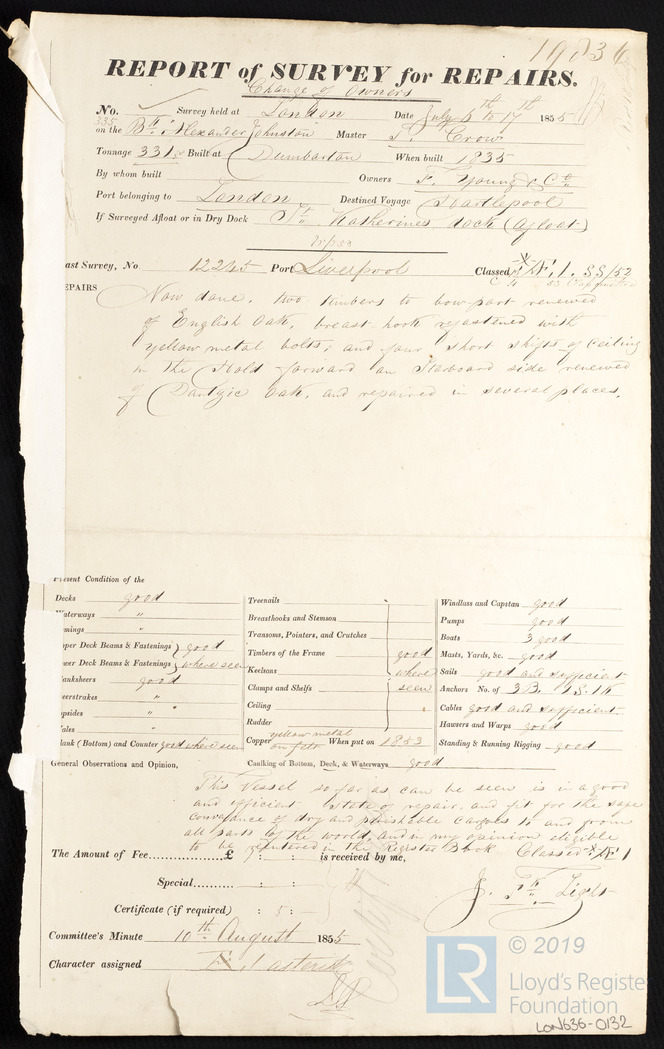 19036
REPORT of SURVEY for REPAIRS.
Change of Owners
No. Survey held at London Date July 5th to 17th 1855
335
on the Bk "Alexander Johnston" Master J. Crow
Tonnage 331 Built at Dumbarton When built 1835
By whom built Owners F. Young & Co.
Port belonging to London Destined Voyage Hartlepool
If Surveyed Afloat or in Dry Dock St. Katherines dock (afloat)
ast Survey, No. 12245 Port Liverpool Classed Æ 1. SS/52
EPAIRS Now done. two timbers to bow port renewed
of English Oak, breast hook refastened with
yellow metal bolts, and four short shifts of Ceiling
in the Hold forward on Starboard side renewed
of Dantzic Oak, and repaired in several places.
resent Condition of the
Decks good
Waterways "
mings "
pper Deck Beams & Fastenings } good
ower Deck Beams & Fastenings } where seen
lanksheers good
eerstrakes "
opsides "
ales "
lank (Bottom) and Counter good where seen
Treenails
Breasthooks and Stemson
Transoms, Pointers, and Crutches
Timbers of the Frame good
Keelsons where
Clamps and Shelfs seen
Ceiling "
Rudder
Copper yellow metal on felt When put on 1853
Windlass and Capstan good
Pumps good
Boats 3 good
Masts, Yards, &c. good
Sails good and sufficient
Anchors No. of 3B. 1S. 1K
Cables good and sufficient
Hawsers and Warps good
Standing & Running Rigging good
General Observations and Opinion, Caulking of Bottom, Deck, & Waterways good
This Vessel so far as can be seen is in a good
and efficient State of repair, and fit for the safe
conveyance of dry and perishable cargoes to and from
all parts of the world, and in my opinion eligible
to be registered in the Register Book Classed Æ 1
The Amount of Fee............... £ : : is received by me,
Special.......... : :
Certificate (if required) : 5 :
J. Light
Committee's Minute 10th August 1855
Character assigned Æ 1 asterisk
LR © 2019
Lloyd's Registe
Foundation
LON636-0132